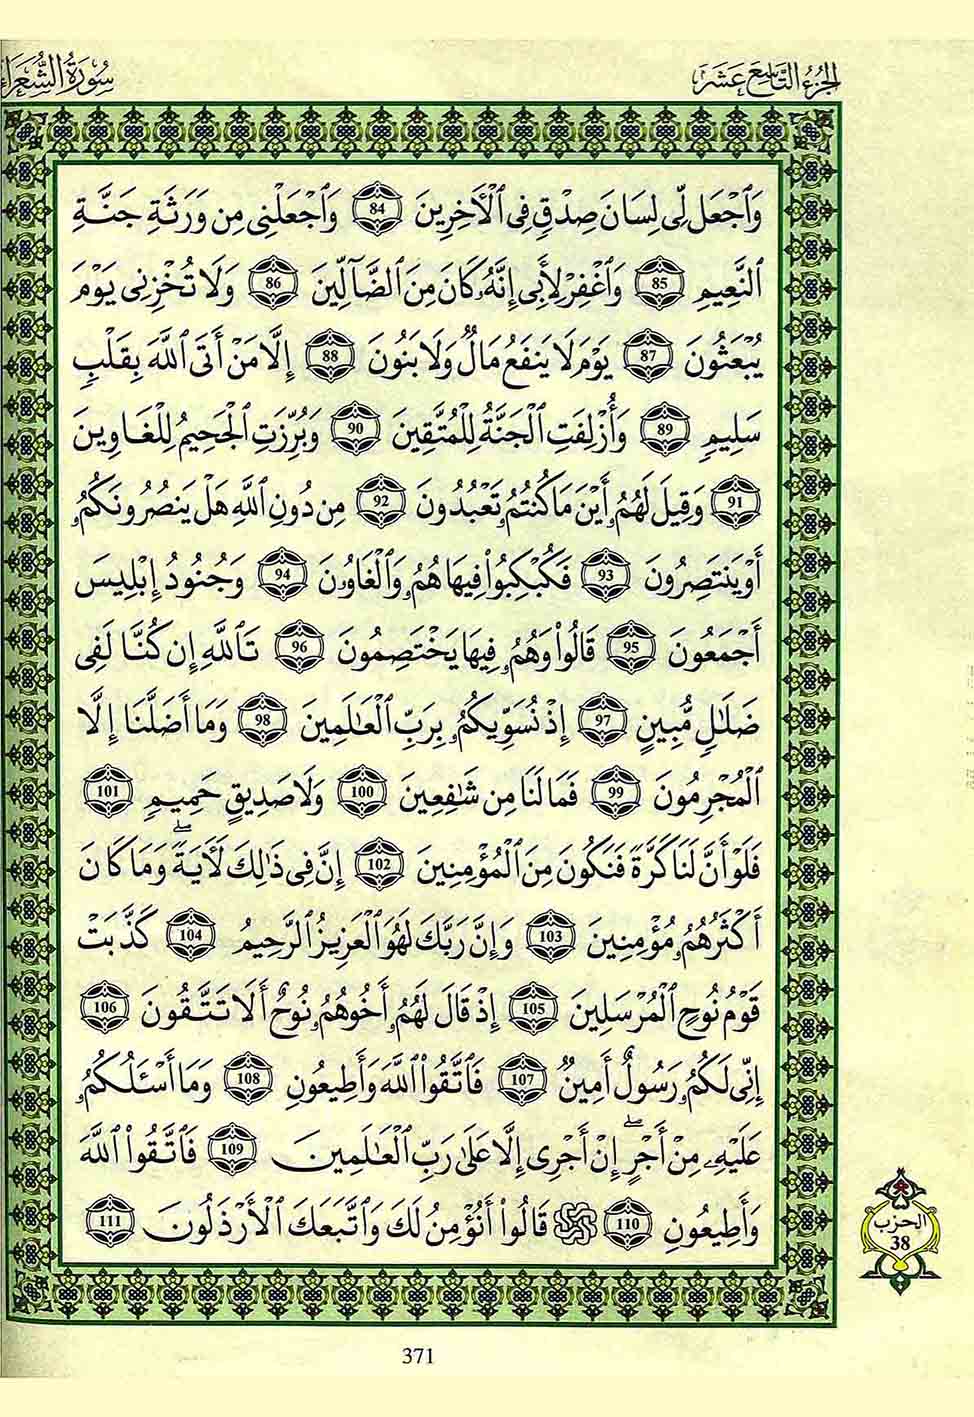 الجزء التاسع عشر
سورة الشعراء
وَٱجْعَل لِّى لِسَانَ صِدْقٍ فِى ٱلْأَخِرِينَ 84 وَٱجْعَلْنِى مِن وَرَثَةِ جَنَّةِ
ٱلنَّعِيمِ 85 وَٱغْفِرْ لِأَبِى إِنَّهُۥ كَانَ مِنَ ٱلضَّآلِّينَ 86 وَلَا تُخْزِنِى يَوْمَ
يُبْعَثُونَ 87 يَوْمَ لَا يَنفَعُ مَالٌ وَلَا بَنُونَ 88 إِلَّا مَنْ أَتَى ٱللَّهَ بِقَلْبٍ
سَلِيمٍ 89 وَأُزْلِفَتِ ٱلْجَنَّةُ لِلْمُتَّقِينَ 90 وَبُرِّزَتِ ٱلْجَحِيمُ لِلْغَاوِينَ
91 وَقِيلَ لَهُمُۥ أَيْنَ مَا كُنتُمُۥ تَعْبُدُونَ 92 مِن دُونِ ٱللَّهِ هَلْ يَنصُرُونَكُمُۥ
أَوْ يَنتَصِرُونَ 93 فَكُبْكِبُوا۟ فِيهَا هُمُۥ وَٱلْغَاوُۥنَ 94 وَجُنُودُ إِبْلِيسَ
أَجْمَعُونَ 95 قَالُوا۟ وَهُمُۥ فِيهَا يَخْتَصِمُونَ 96 تَٱللَّهِ إِن كُنَّا لَفِى
ضَلَٰلٍ مُّبِينٍ 97 إِذْ نُسَوِّيكُمُۥ بِرَبِّ ٱلْعَٰلَمِينَ 98 وَمَا أَضَلَّنَا إِلَّا
ٱلْمُجْرِمُونَ 99 فَمَا لَنَا مِن شَٰفِعِينَ 100 وَلَا صَدِيقٍ حَمِيمٍ 101
فَلَوْ أَنَّ لَنَا كَرَّةً فَنَكُونَ مِنَ ٱلْمُؤْمِنِينَ 102 إِنَّ فِى ذَٰلِكَ لَأَيَةً ۖ وَمَا كَانَ
أَكْثَرُهُمُۥ مُؤْمِنِينَ 103 وَإِنَّ رَبَّكَ لَهُوَ ٱلْعَزِيزُ ٱلرَّحِيمُ 104 كَذَّبَتْ
قَوْمُ نُوحٍ ٱلْمُرْسَلِينَ 105 إِذْ قَالَ لَهُمُۥ أَخُوهُمُۥ نُوحٌ أَلَا تَتَّقُونَ 106
إِنِّى لَكُمُۥ رَسُولٌ أَمِينٌ 107 فَٱتَّقُوا۟ ٱللَّهَ وَأَطِيعُونِ 108 وَمَا أَسْـَٔلُكُمُۥ
عَلَيْهِۦ مِنْ أَجْرٍ ۖ إِنْ أَجْرِى إِلَّا عَلَىٰ رَبِّ ٱلْعَٰلَمِينَ 109 فَٱتَّقُوا۟ ٱللَّهَ
وَأَطِيعُونِ 110 ۞ قَالُوا۟ أَنُؤْمِنُ لَكَ وَٱتَّبَعَكَ ٱلْأَرْذَلُونَ 111
الحزب
38
371